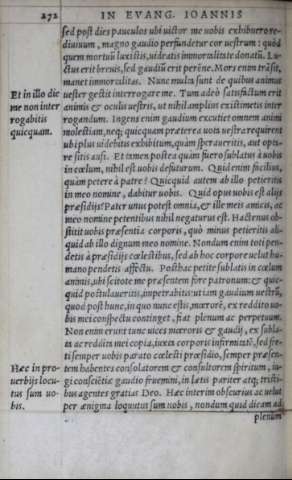 272 IN EVANG. IOANNIS
sed post dies pauculos ubi uictor me uobis exhibuero re-
diuiuum, magno gaudio perfundetur cor uestrum: quòd
quem mortuũ luxistis, uideatis immortalitate donatũ. Lu-
ctus erit breuis, sed gaudiũ erit perẽne. Mors enim trãsit,
manet immortalitas. Nunc multa sunt de quibus animus
Et in illo die
uester gestit interrogare me. Tum adeò satisfactum erit
me non inter
animis & oculis uestris, ut nihil amplius existimetis inter
rogabitis
rogandum. Ingens enim gaudium excutiet omnem animi
quicquam.
molestiam, neq; quicquam præterea uota uestra requirent
ubi plus uidebitis exhibitum, quàm speraueritis, aut opta-
re sitis ausi. Et tamen postea quàm fuero sublatus à uobis
in cœlum, nihil est uobis defuturum. Quid enim facilius,
quàm petere à patre? Quicquid autem ab illo petieritis
in meo nomine, dabitur uobis. Quid opus uobis est alijs
præsidijs? Pater unus potest omnia, & ille meis amicis, ac
meo nomine petentibus nihil negaturus est. Hactenus ob-
stitit uobis præsentia corporis, quò minus petieritis ali-
quid ab illo dignum meo nomine. Nondum enim toti pen-
detis à præsidijs cœlestibus, sed ab hoc corpore uelut hu-
mano pendetis affectu. Posthac petite sublatis in cœlum
animis, ubi scitote me præsentem fore patronum: & quic-
quid postulaueritis, impetrabitis: ut iam gaudium uestrũ,
quod post hunc, in quo nunc estis, mœrorẽ, ex reddito uo-
bis mei conspectu continget, fiat plenum ac perpetuum.
Non enim erunt tunc uices mœroris & gaudij, ex subla-
ta ac reddita mei copia, iuxta corporis infirmitatẽ, sed fre-
ti semper uobis parato cœlesti præsidio, semper præsen-
Hæc in pro-
tem habentes consolatorem & consultorem spiritum, iu-
uerbijs locu-
gi conscietiæ gaudio fruemini, in lætis pariter atq; tristi-
tus sum uo-
bus agentes gratias Deo. Hæc interim obscurius ac uelut
bis.
per ænigma loquutus sum uobis, nondum quid dicam ad
plenum